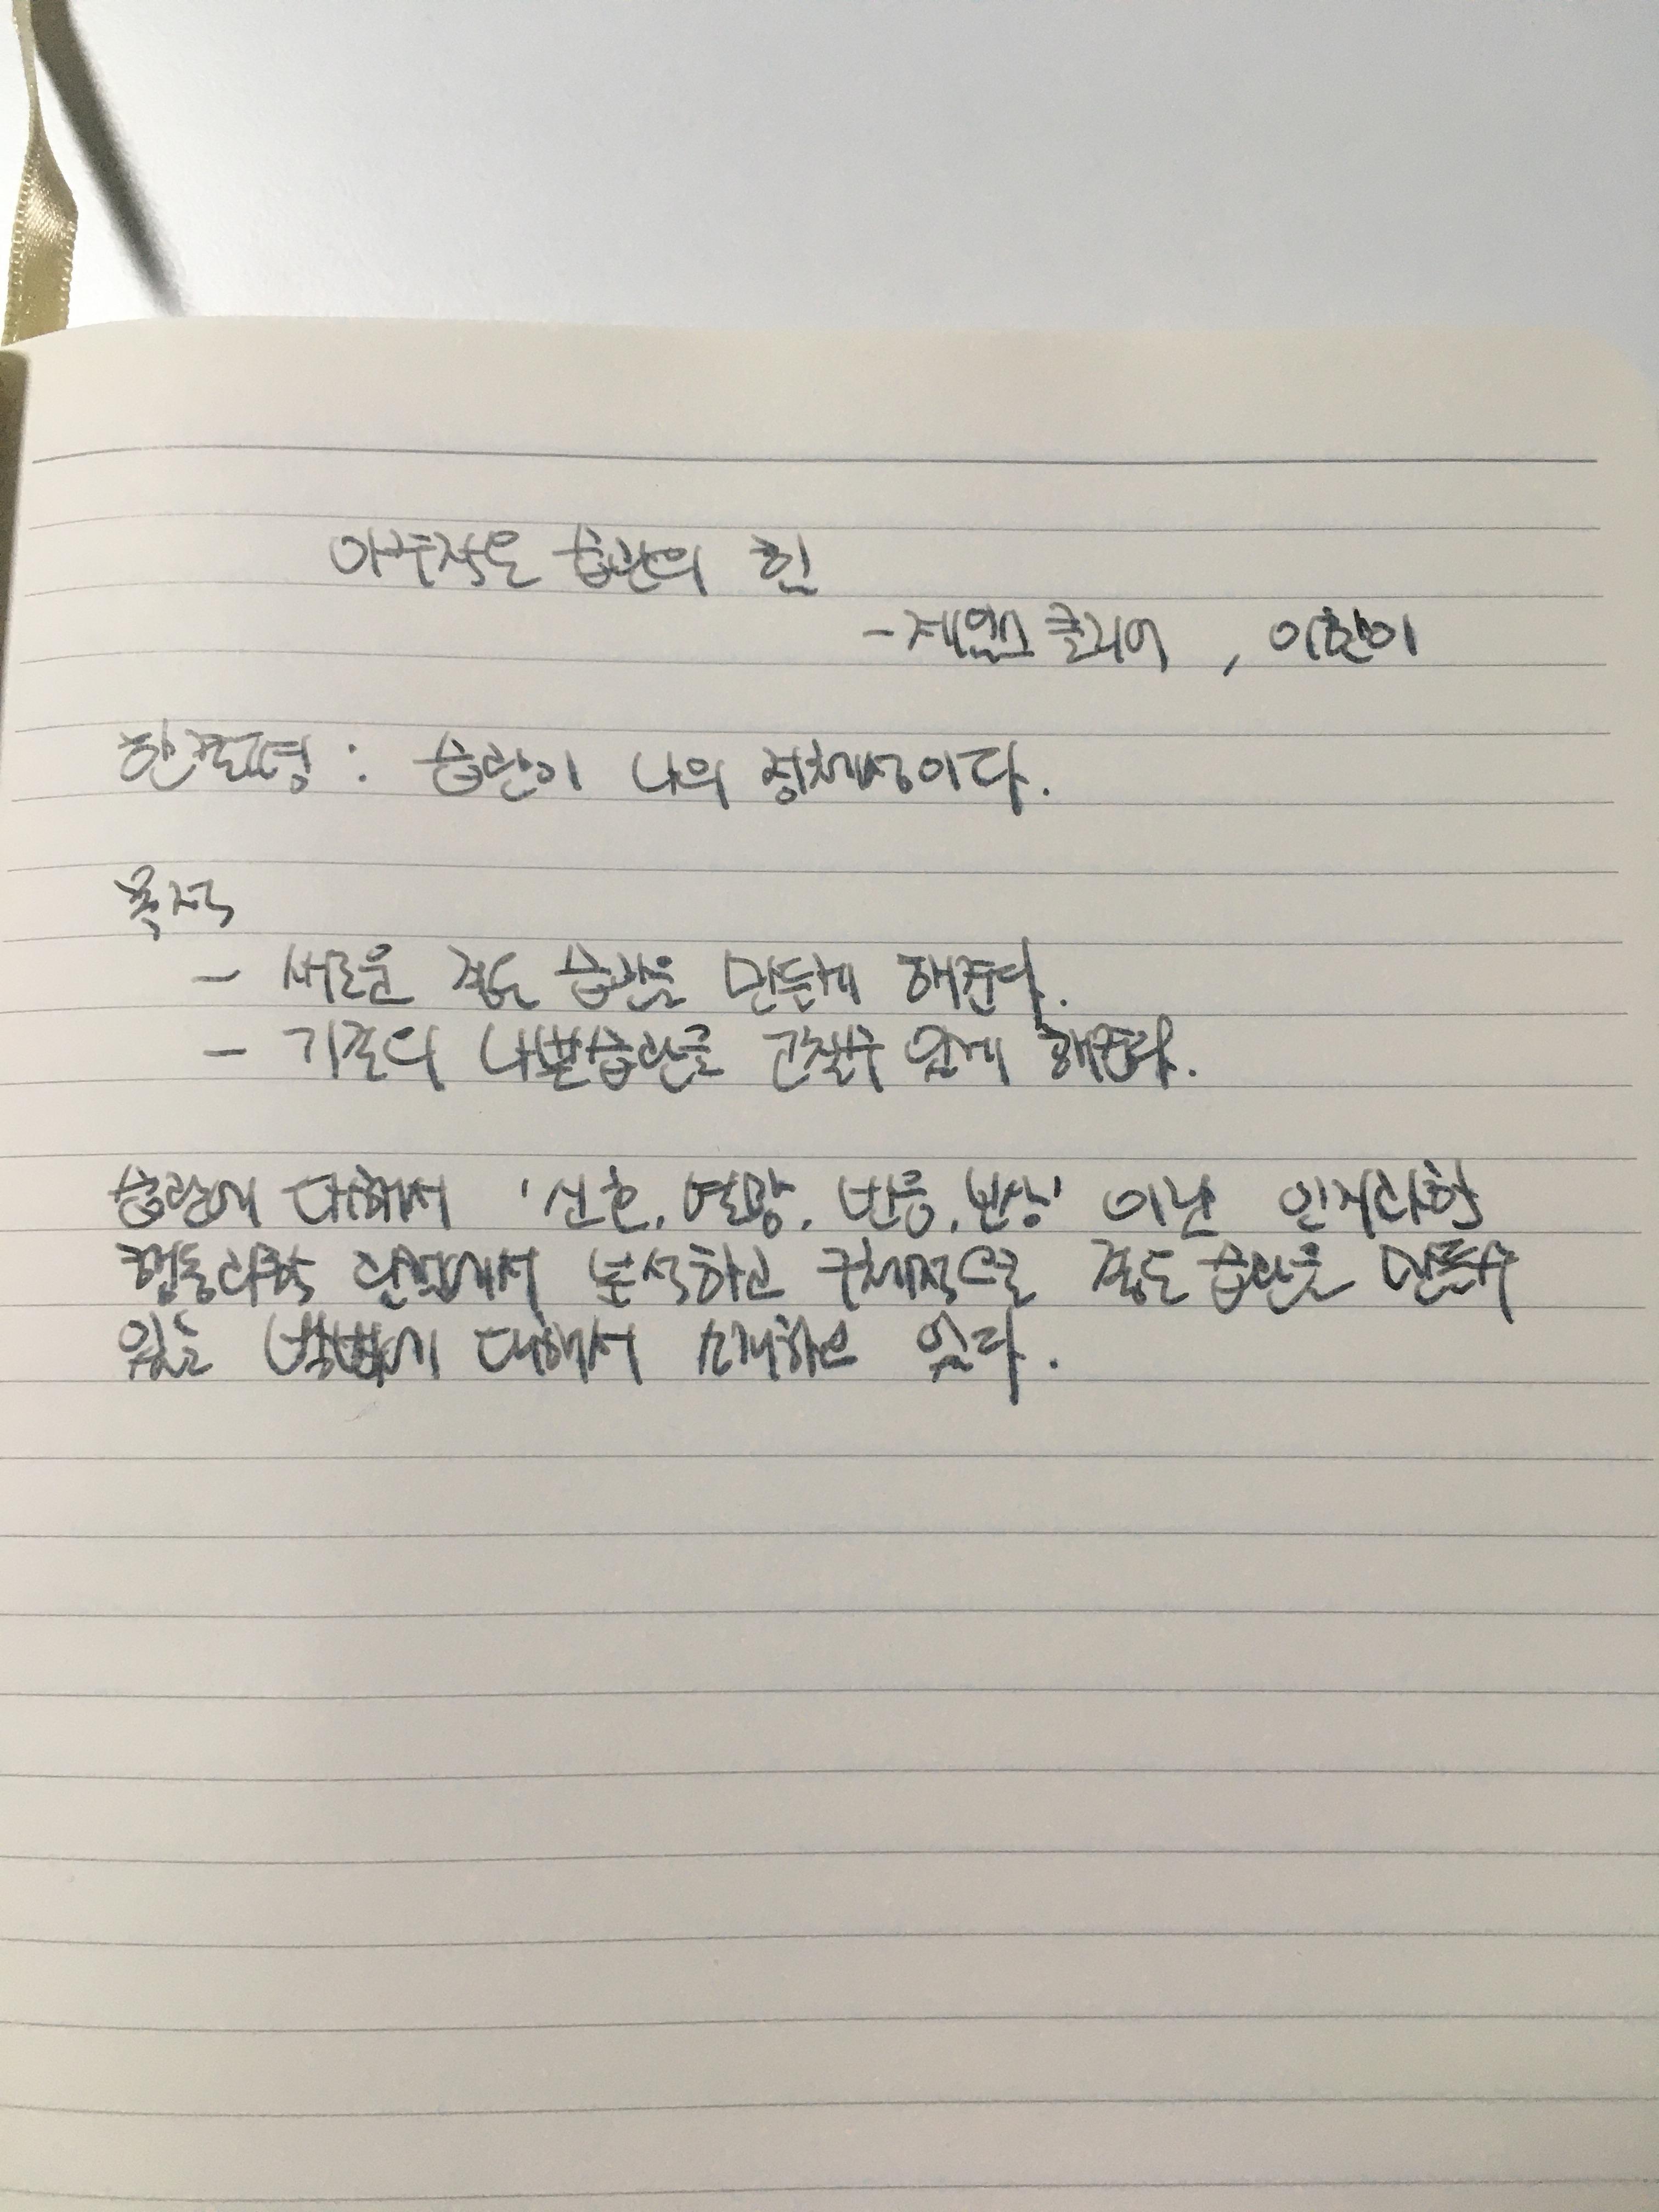 아주작은 습관의 힘
- 제임스 클리어 , 이한이
한줄평 : 습관이 나의 정체성이다.
목적
- 새로운 좋은 습관을 만들게 해준다.
- 기존의 나쁜습관을 고칠수 있게 해준다.
습관에 대해서 '신호, 열망, 반응, 보상' 이란 인지과학
행동과학 관점에서 분석하고 구체적으로 좋은 습관을 만들수
있는 방법에 대해서 소개하고 있다.